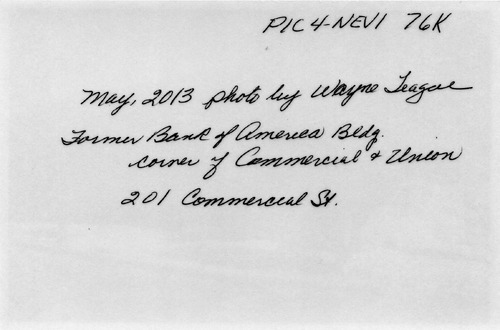 PIC 4-NEVI 76K
May, 2013 photo by Wayne Teague
Former Bank of America Bldg.
corner of Commercial & Union
201 Commercial St.